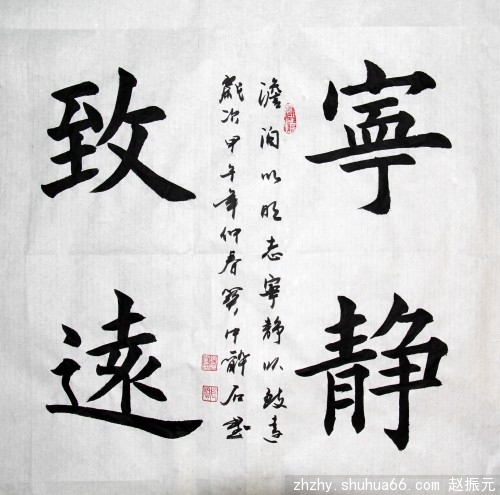 寧静
澹泊以明志寧静以致遠
歲次甲午年仲春冀中醉石書
致遠
zhzhy.shuhua66.com 赵振元